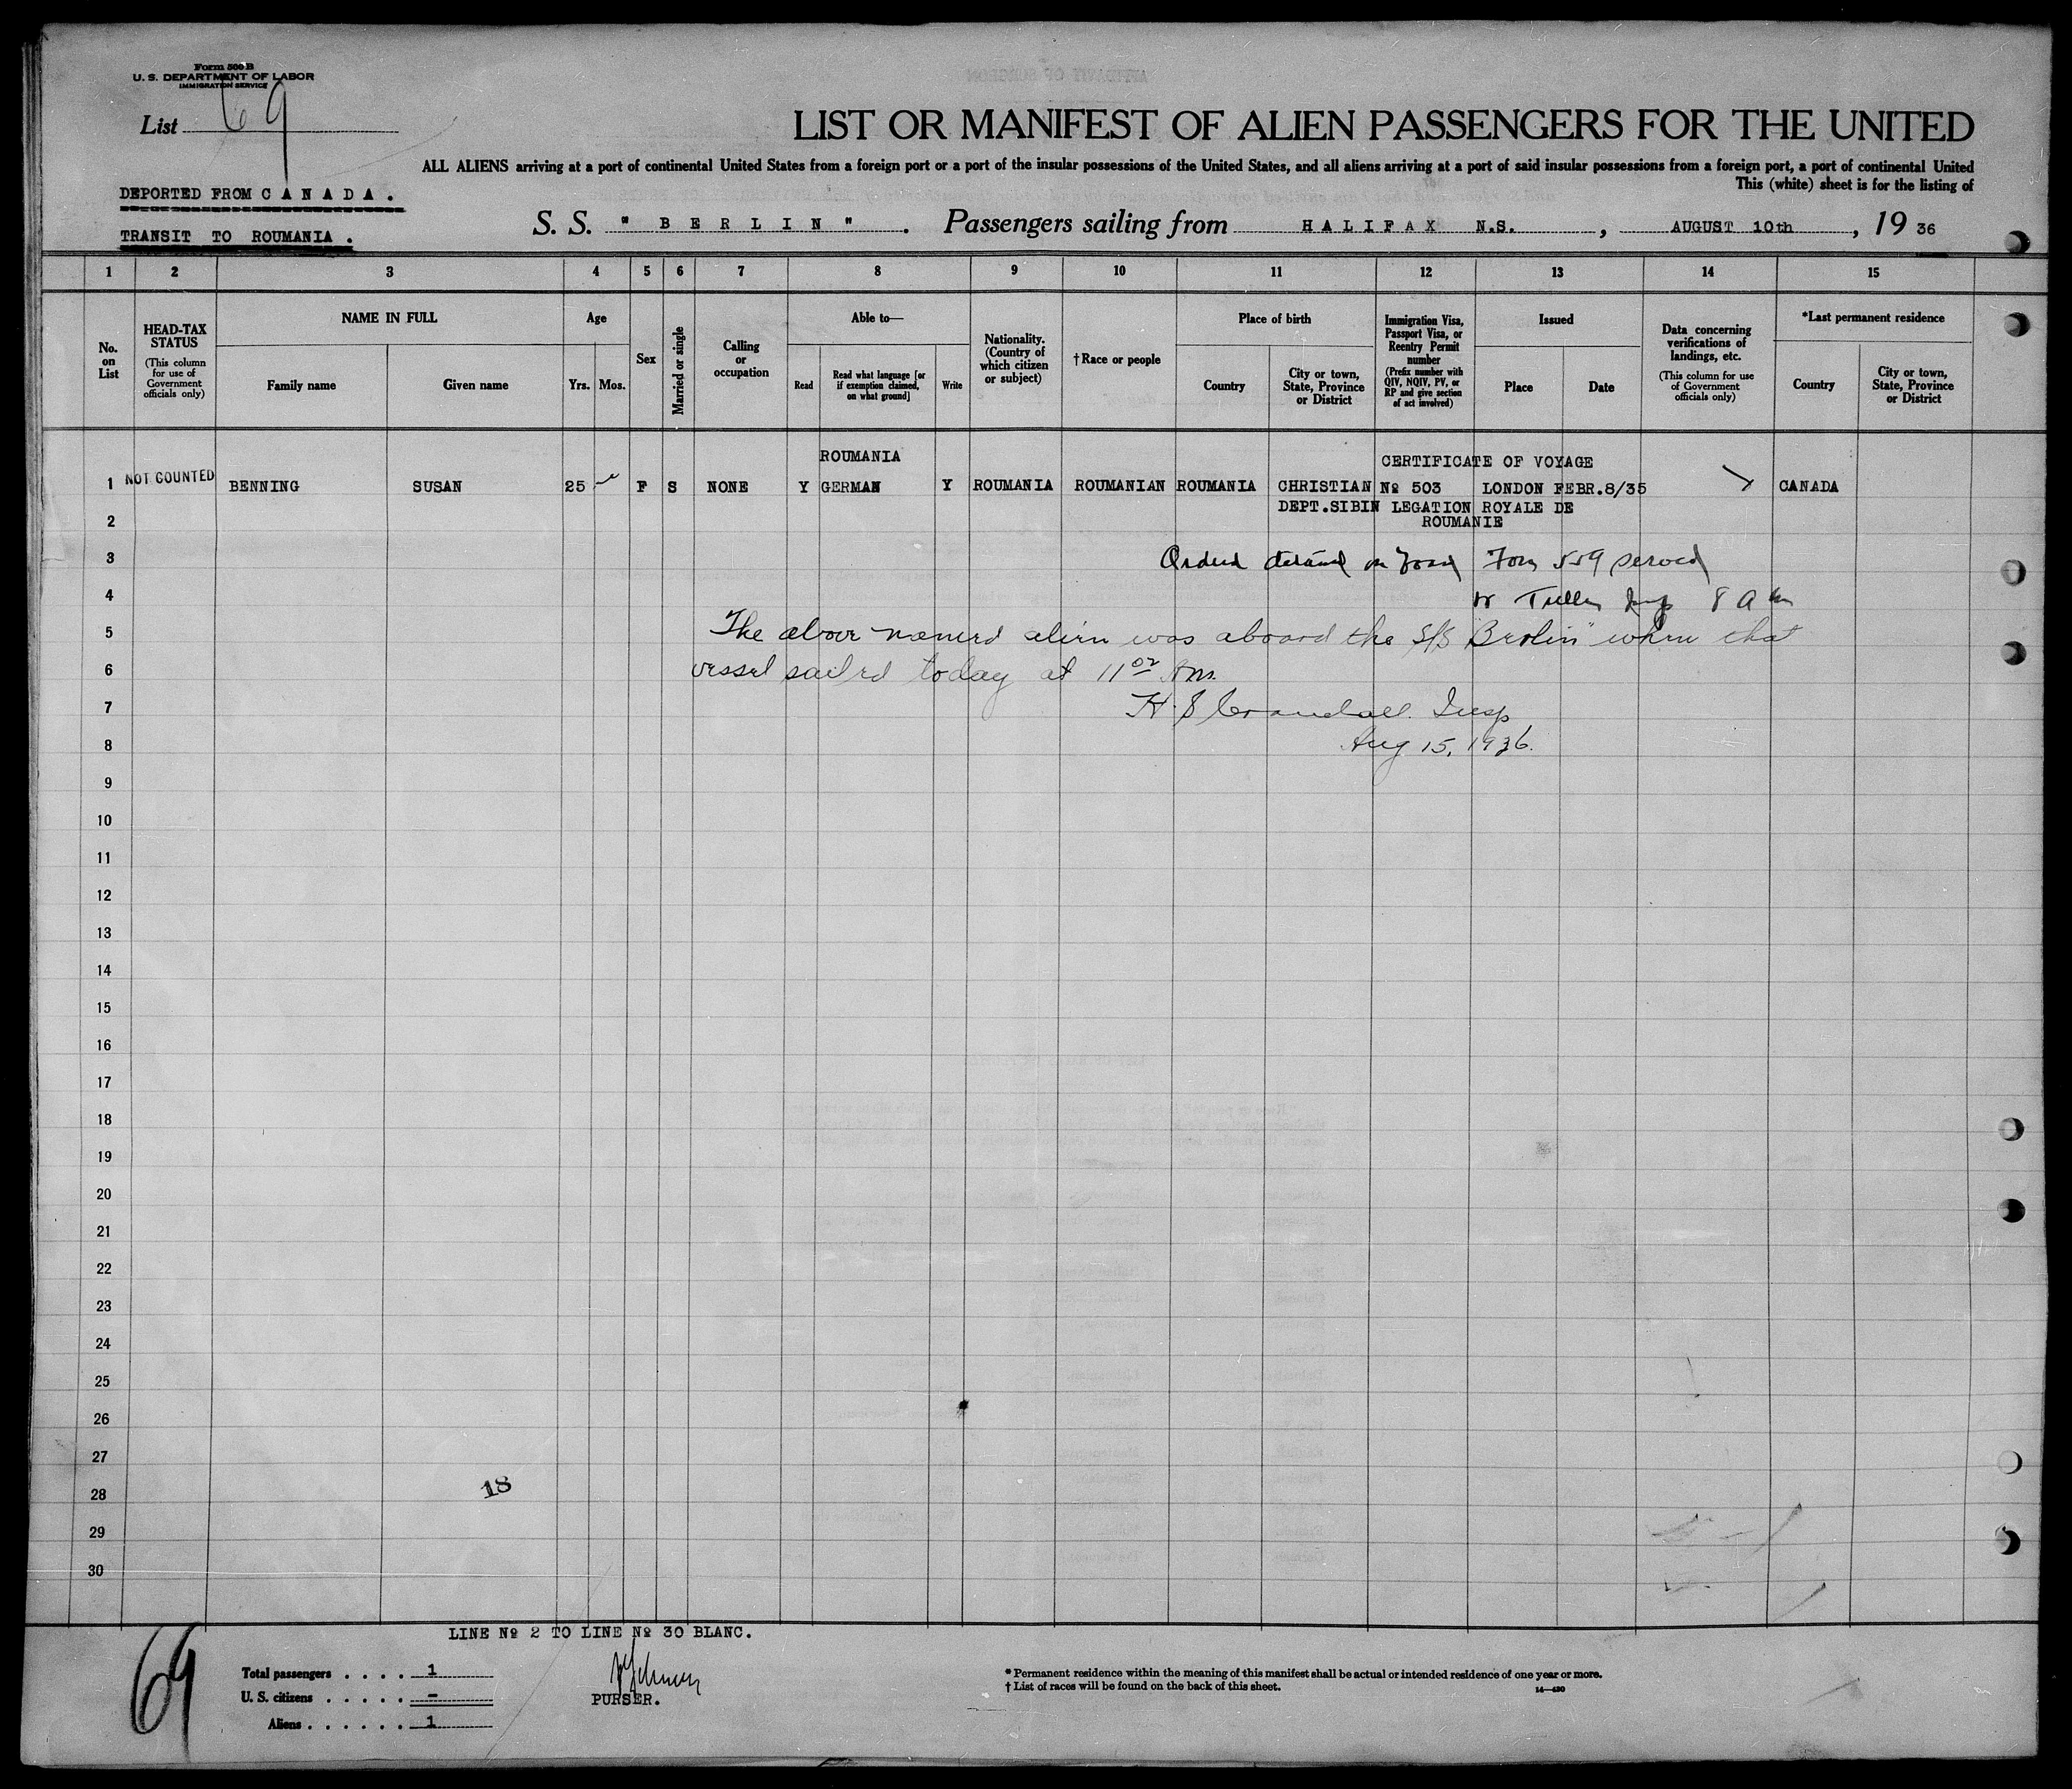 Form 500 B
U. S. DEPARTMENT OF LABOR
IMMIGRATION SERVICE
List 69
LIST OR MANIFEST OF ALIEN PASSENGERS FOR THE UNITED
ALL ALIENS arriving at a port of continental United States from a foreign port or a port of the insular possessions of the United States, and all aliens arriving at a port of said insular possessions from a foreign port, a port of continental United
This (white) sheet is for the listing of
DEPORTED FROM C A N A D A .
TRANSIT TO ROUMANIA .
S. S. " B E R L I N " . Passengers sailing from H A L I F A X N.S. , AUGUST 10th , 19 36
1 2 3 4 5 6 7 8 9 10 11 12 13 14 15
No. on List
HEAD-TAX STATUS
(This column for use of Government officials only)
NAME IN FULL
Family name
Given name
Age
Yrs. Mos.
Sex
Married or single
Calling or occupation
Able to—
Read
Read what language [or if exemption claimed, on what ground]
Write
Nationality. (Country of which citizen or subject)
†Race or people
Place of birth
Country
City or town, State, Province or District
Immigration Visa, Passport Visa, or Reentry Permit number
(Prefix number with QIV, NQIV, PV, or RP and give section of act involved)
Issued
Place
Date
Data concerning verifications of landings, etc.
(This column for use of Government officials only)
*Last permanent residence
Country
City or town, State, Province or District
ROUMANIA
CERTIFICATE OF VOYAGE
1 NOT COUNTED BENNING SUSAN 25 F S NONE Y GERMAN Y ROUMANIA ROUMANIAN ROUMANIA CHRISTIAN № 503 LONDON FEBR.8/35 CANADA
2 DEPT.SIBIN LEGATION ROYALE DE
ROUMANIE
3 Ordered detained on board Form 559 served
4 Insp 8 A m
5 The above named alien was aboard the S/S "Berlin" when that
6 vessel sailed today at 11 00 Am.
7 H. S Crandall. Insp
8 Aug 15, 1936.
9
10
11
12
13
14
15
16
17
18
19
20
21
22
23
24
25
26
27
28 18
29
30
LINE № 2 TO LINE № 30 BLANC.
69
Total passengers . . . . 1
U. S. citizens . . . . . –
Aliens . . . . . . 1
PURSER.
* Permanent residence within the meaning of this manifest shall be actual or intended residence of one year or more.
† List of races will be found on the back of this sheet.
14—430